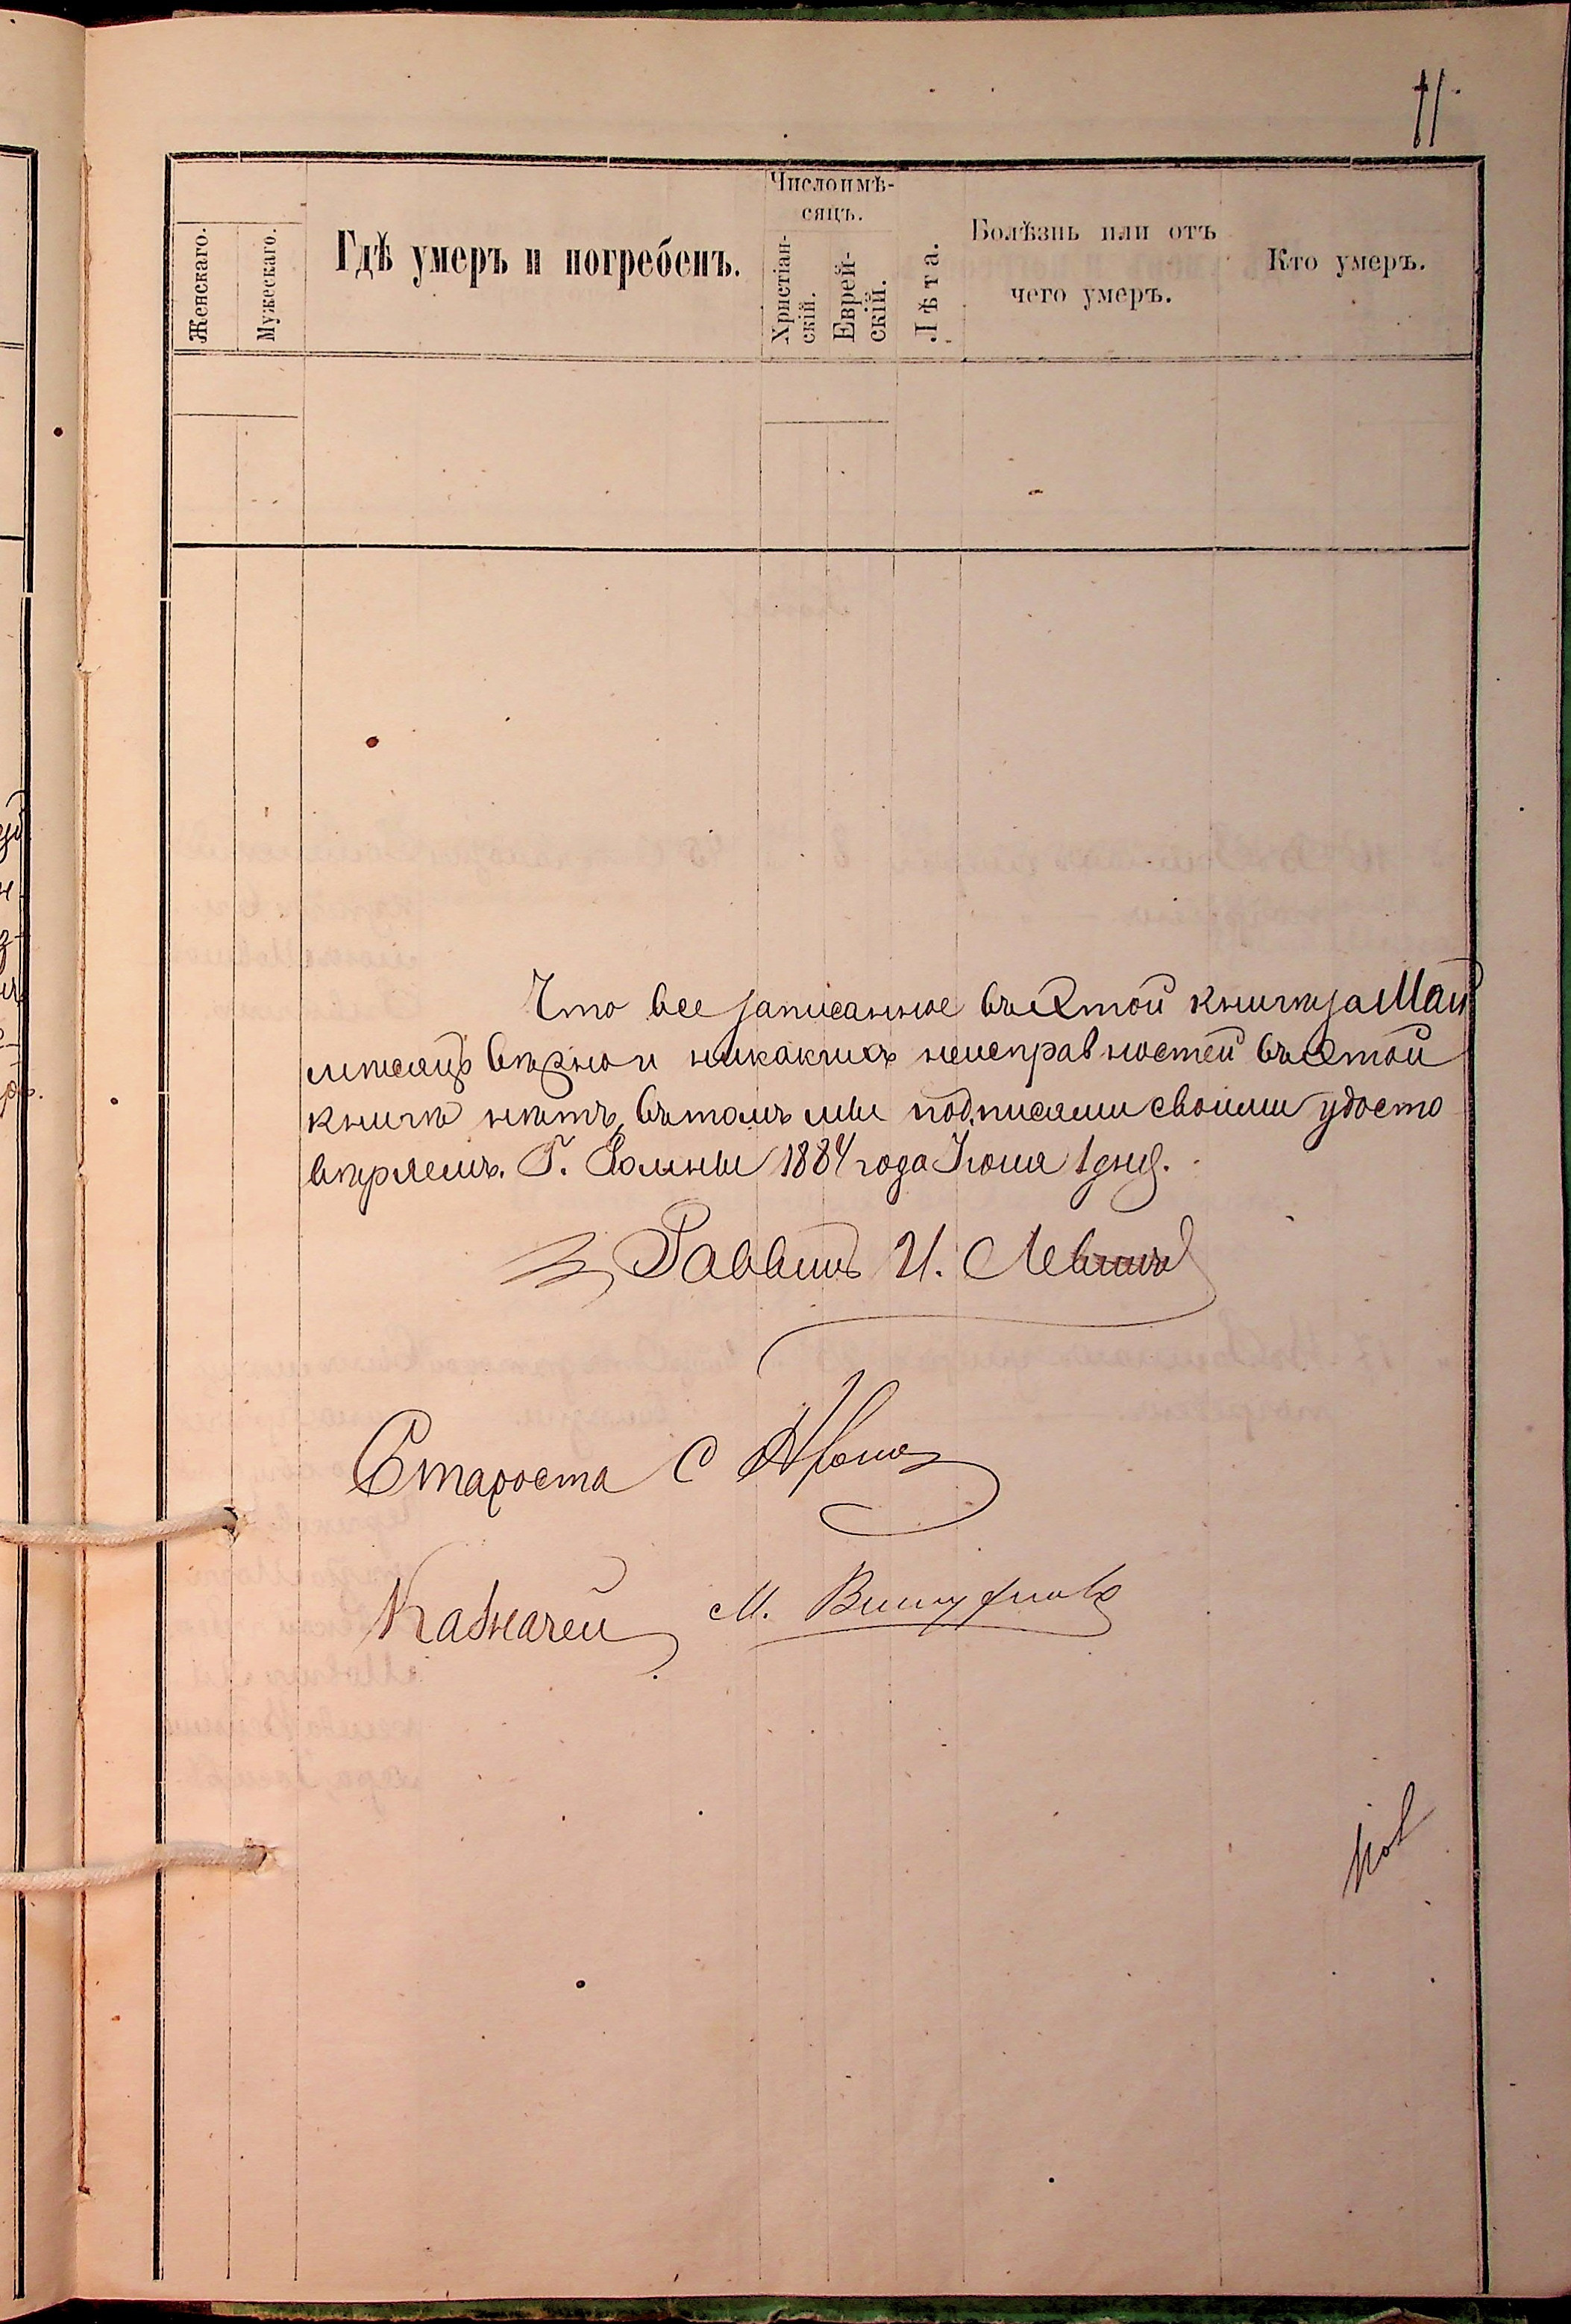 11.
Числоимѣ-
сяцъ.
Женскаго.
Мужескаго.
Гдѣ умеръ и погребенъ.
Христіан-
скій.
Еврей-
скій.
Лѣта.
Болѣзнь или отъ
чего умеръ.
Кто умеръ.
Что все записанное въ этой книги за Май
мѣсяцъ вѣрно и никакихъ неисправностей въ этой
книге нѣтъ, въ томъ мы подписями своими удосто
вѣряемъ. Г. Ромны 1884 года Іюня 1 дня.
Раввинъ И. Левинъ
Староста С
Казначей М.